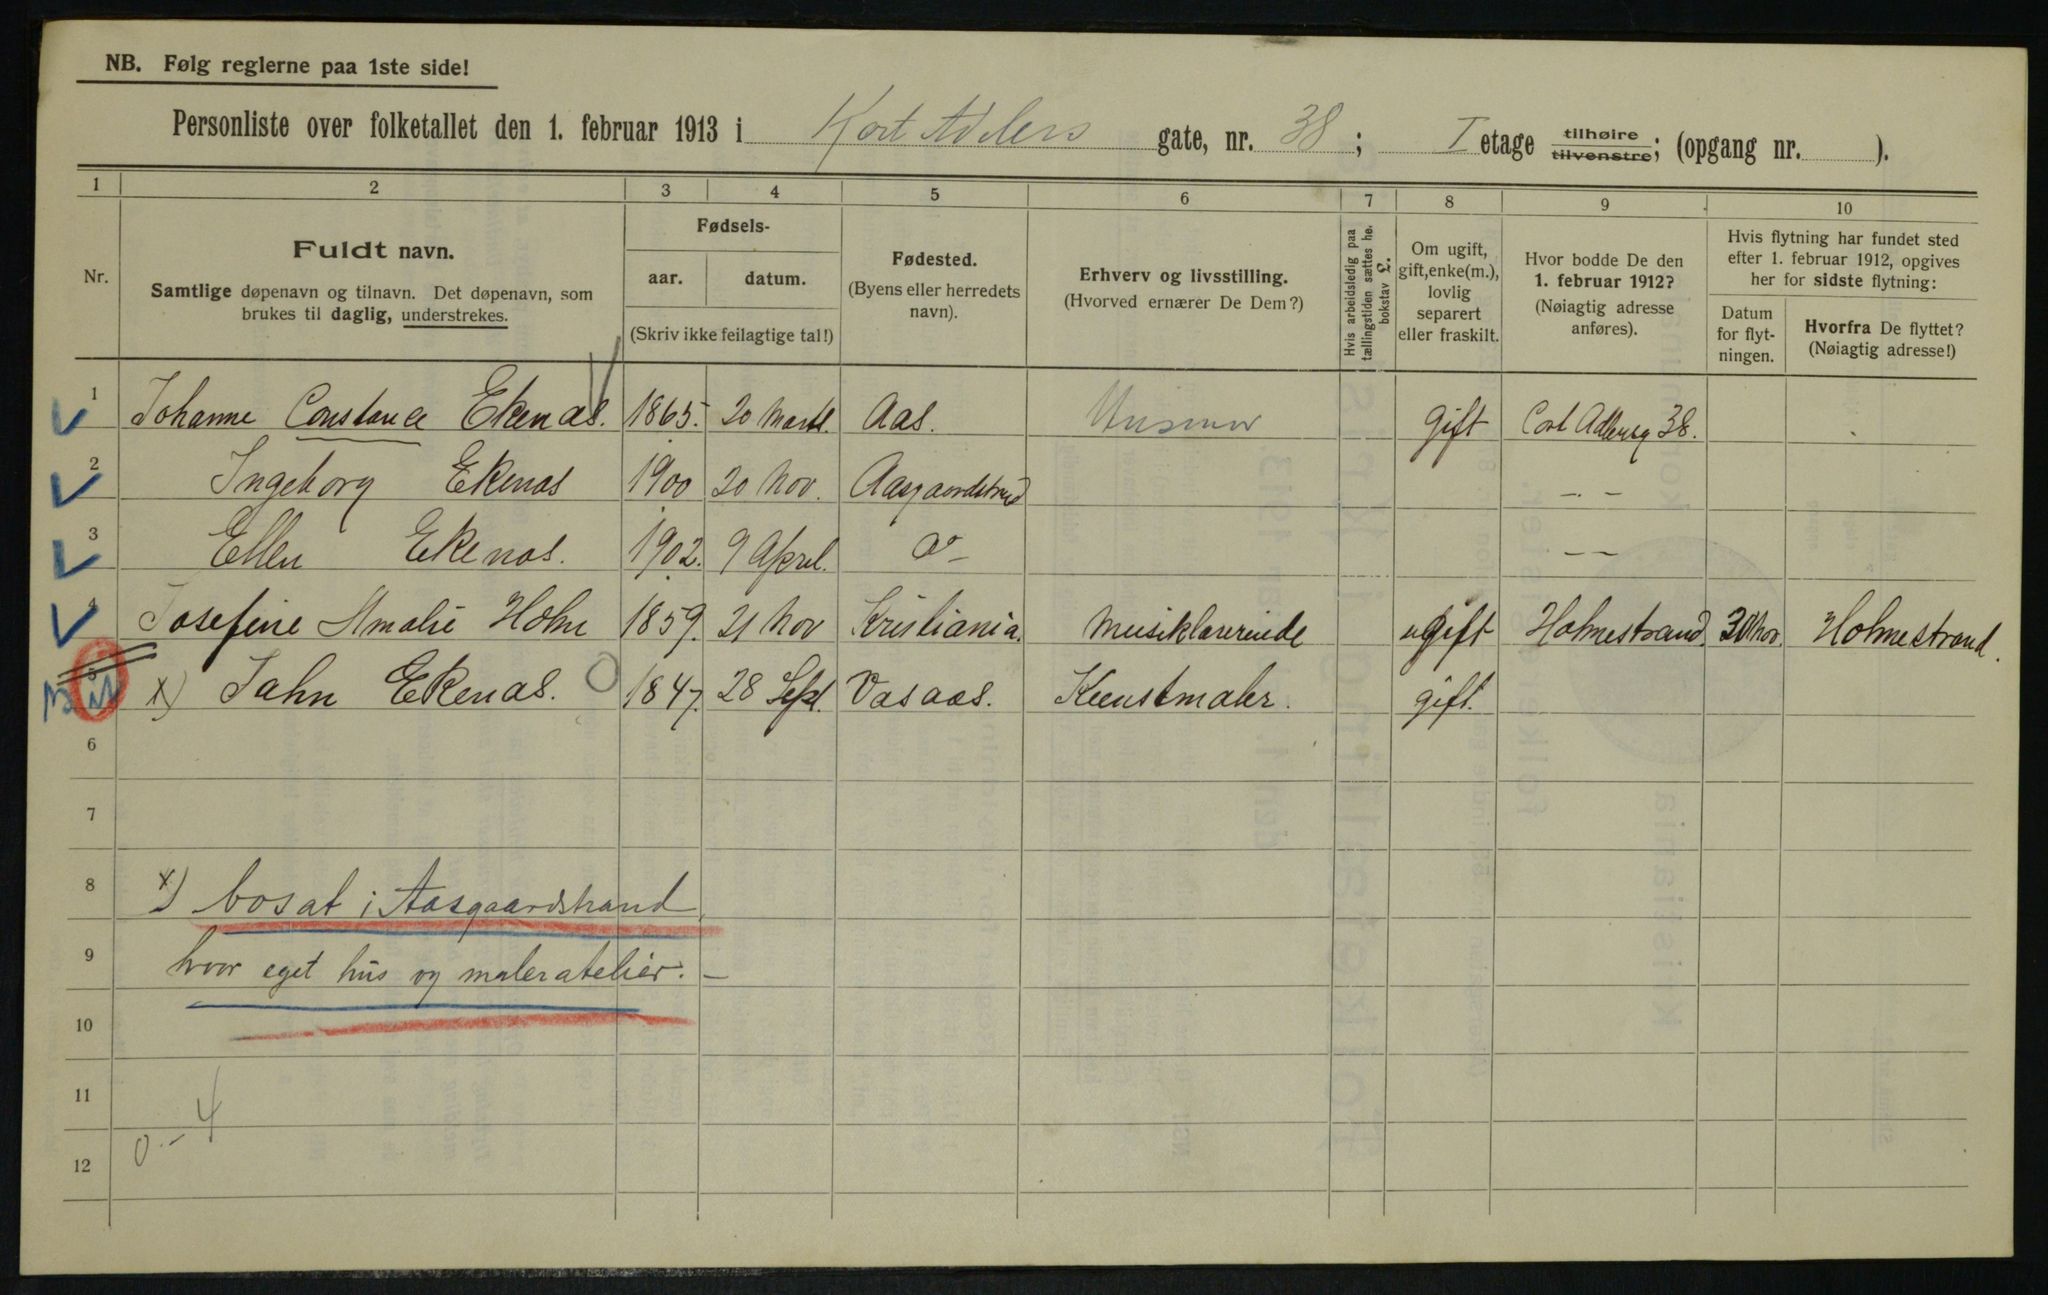 NB. Følg reglerne paa 1ste side!
Personliste over folketallet den 1. februar 1913 i Kort Adelers gate, nr. 38; I etage tilhøire tilvenstre; (opgang nr. ).
1 2 3 4 5 6 7 8 9 10
Nr.
Fuldt navn.
Samtlige døpenavn og tilnavn. Det døpenavn, som
brukes til daglig, understrekes.
Fødsels-
aar. datum.
(Skriv ikke feilagtige tal!)
Fødested.
(Byens eller herredets
navn).
Erhverv og livsstilling.
(Hvorved ernærer De Dem?)
Hvis arbeidsledig paa
tællingstiden sættes he.
bokstav £.
Om ugift,
gift, enke(m.),
lovlig
separert
eller fraskilt.
Hvor bodde De den
1. februar 1912?
(Nøiagtig adresse
anføres).
Hvis flytning har fundet sted
efter 1. februar 1912, opgives
her for sidste flytning:
Datum
for flyt-
ningen.
Hvorfra De flyttet?
(Nøiagtig adresse!)
1 Johanne Constance Ekenæs. 1865. 20 Marts. Aas. Husmor Gift Cort Adlersg 38.
2 Ingeborg Ekenæs 1900 20 Nov. Aasgaardstrand — " —
3 Ellen Ekenæs. 1902. 9 April. do — — —
4 Josefine Amalie Holm 1859. 21 Nov Kristiania. Musiklærerinde ugift Holmestrand. 30 Nov. Holmestrand.
5 x) Jahn Ekenæs. 1847. 28 Sept. Vasaas. Kunstmaler. gift.
6
7
8 x) bosat i Aasgaardstrand
9 hvor eget hus og maleratelier. —
10
11
0 – 4
12